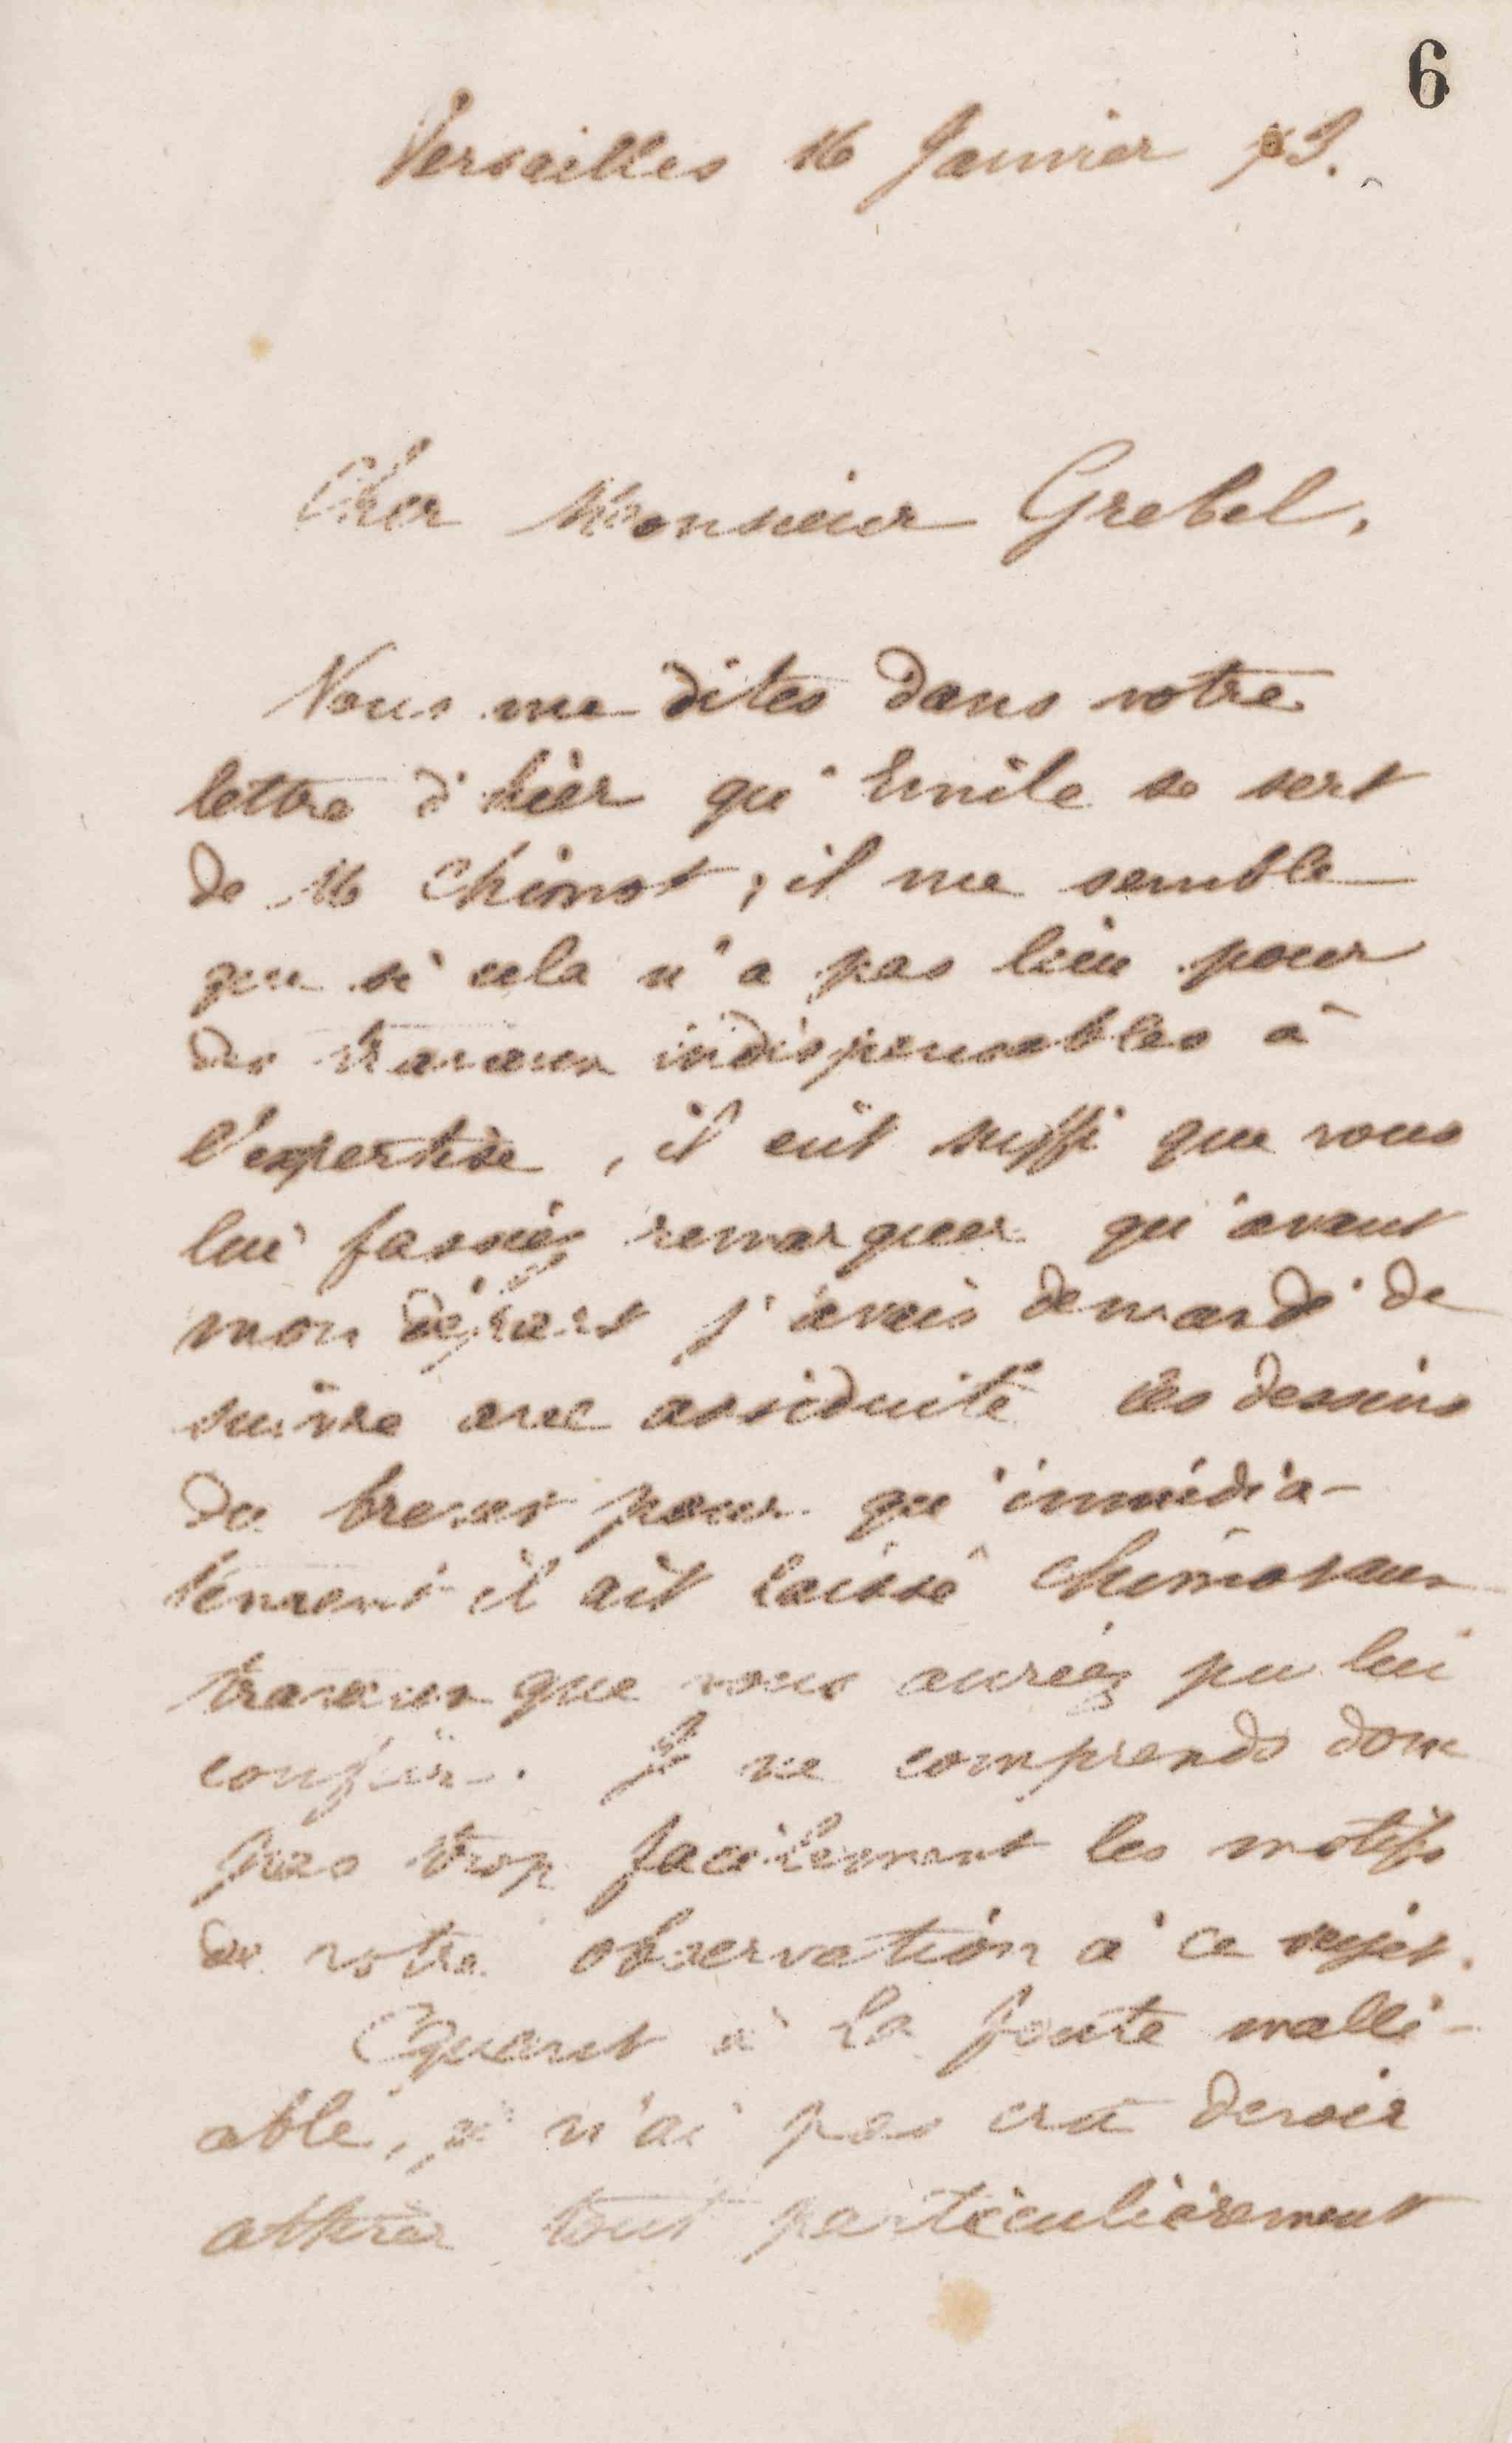 6
Versailles 16 Janvier 73.
Cher Monsieur Grebel,
Vous me dites dans votre
lettre d'hier qu'Emile se sert
de M Chimot ; il me semble
que si cela n'a pas lieu pour
des travaux indispensables à
l'expertise, il eût suffi que vous
lui fassiez remarquer qu'avant
mon départ j'avais demandé de
suivre avec assiduité les dessins
du brevet pour qu'immédia-
tement il ait laissé Chimot aux
travaux que vous auriez pu lui
confier. Je ne comprends donc
pas trop facilement les motifs
de votre observation à ce sujet.
Quant à la fonte mallé-
able, je n'ai pas cru devoir
attirer tout particulièrement